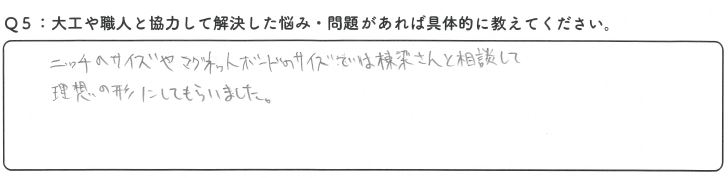 Q5：大工や職人と協力して解決した悩み・問題があれば具体的に教えてください。
ニッチのサイズやマグネットボードのサイズでは棟梁さんと相談して
理想の形にしてもらいました。